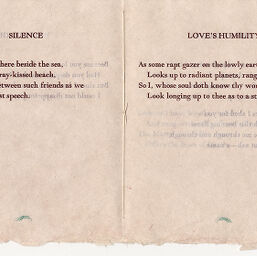 SILENCE
here beside the sea,
ray-kissed beach,
etween such friends as we
st speech.
LOVE'S HUMILITY
As some rapt gazer on the lowly eart
Looks up to radiant planets, rang
So I, whose soul doth know thy wo
Look longing up to thee as to a st